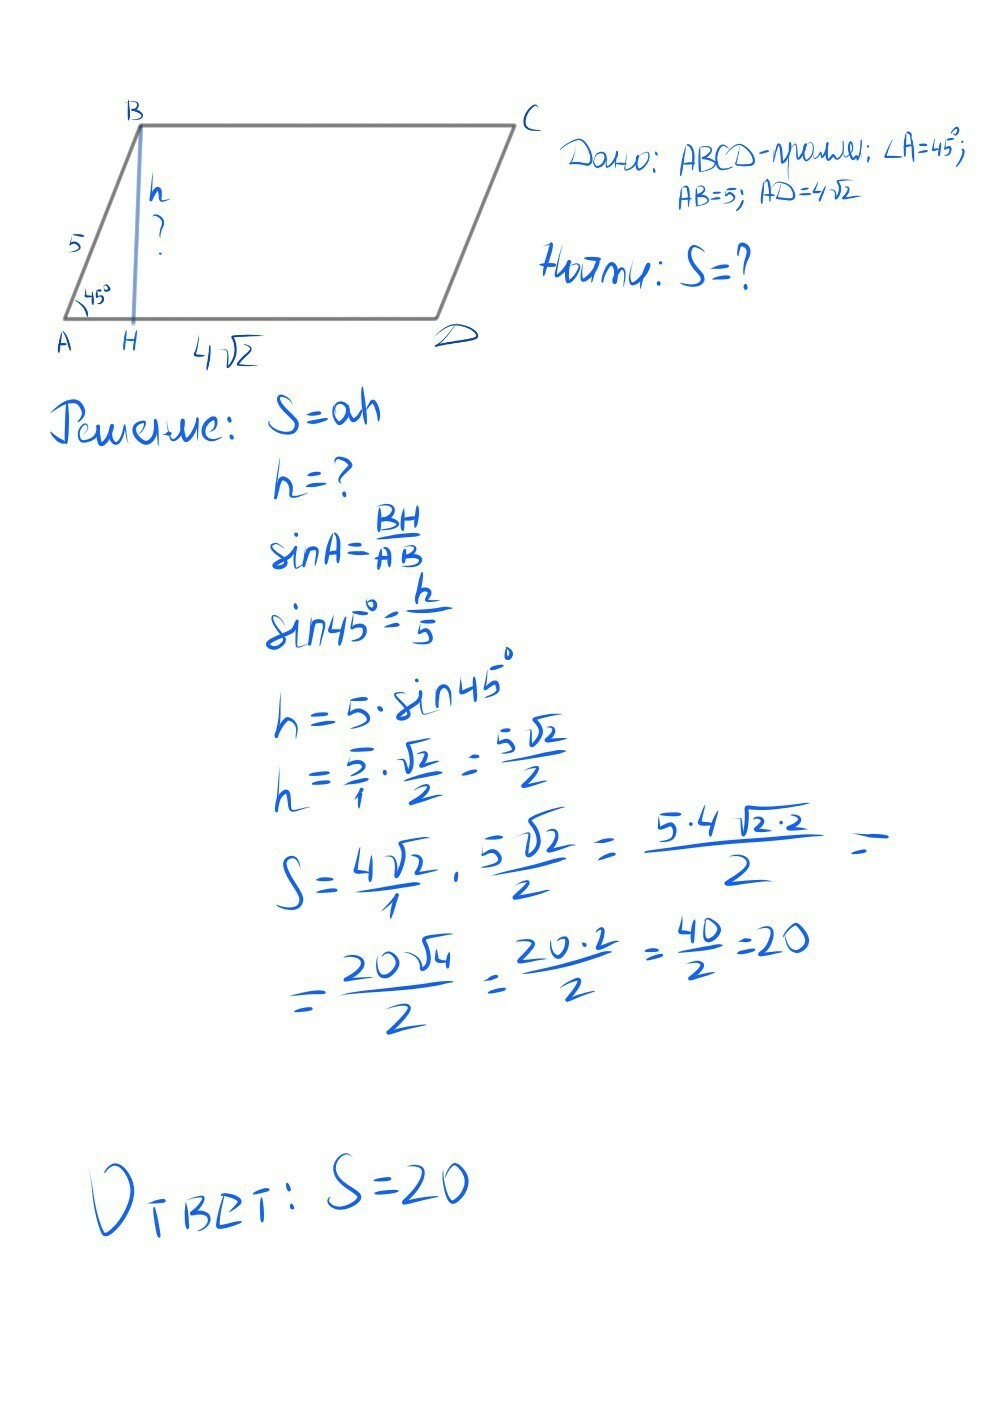 B
C
h
?
5
45°
A
H
4√2
D
Дано: ABCD-пралл.; ∠A=45°;
AB=5; AD=4√2
Найти: S=?
Решение: S=ah
h=?
sinA=BH/AB
sin45°=h/5
h=5·sin45°
h=5/1·√2/2=5√2/2
S=4√2/1·5√2/2=5·4√2·2/2=
=20√4/2=20·2/2=40/2=20
Ответ: S=20